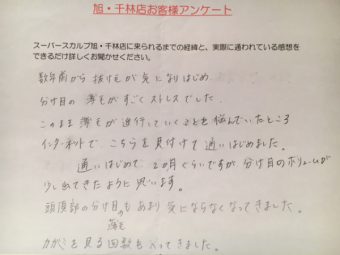 旭・千林店お客様アンケート
スーパースカルプ旭・千林店に来られるまでの経緯と、実際に通われている感想を
できるだけ詳しくお聞かせください。
数年前から抜け毛が気になりはじめ
分け目の薄毛がすごくストレスでした。
このまま薄毛が進行していくことを悩んでいたところ
インターネットで、こちらを見付けて通いはじめました。
通いはじめて2か月ぐらいですが、分け目のボリュームが
少し出てきたように思います。
頭頂部の分け目の薄毛もあまり気にならなくなってきました。
カガミを見る回数もへってきました。